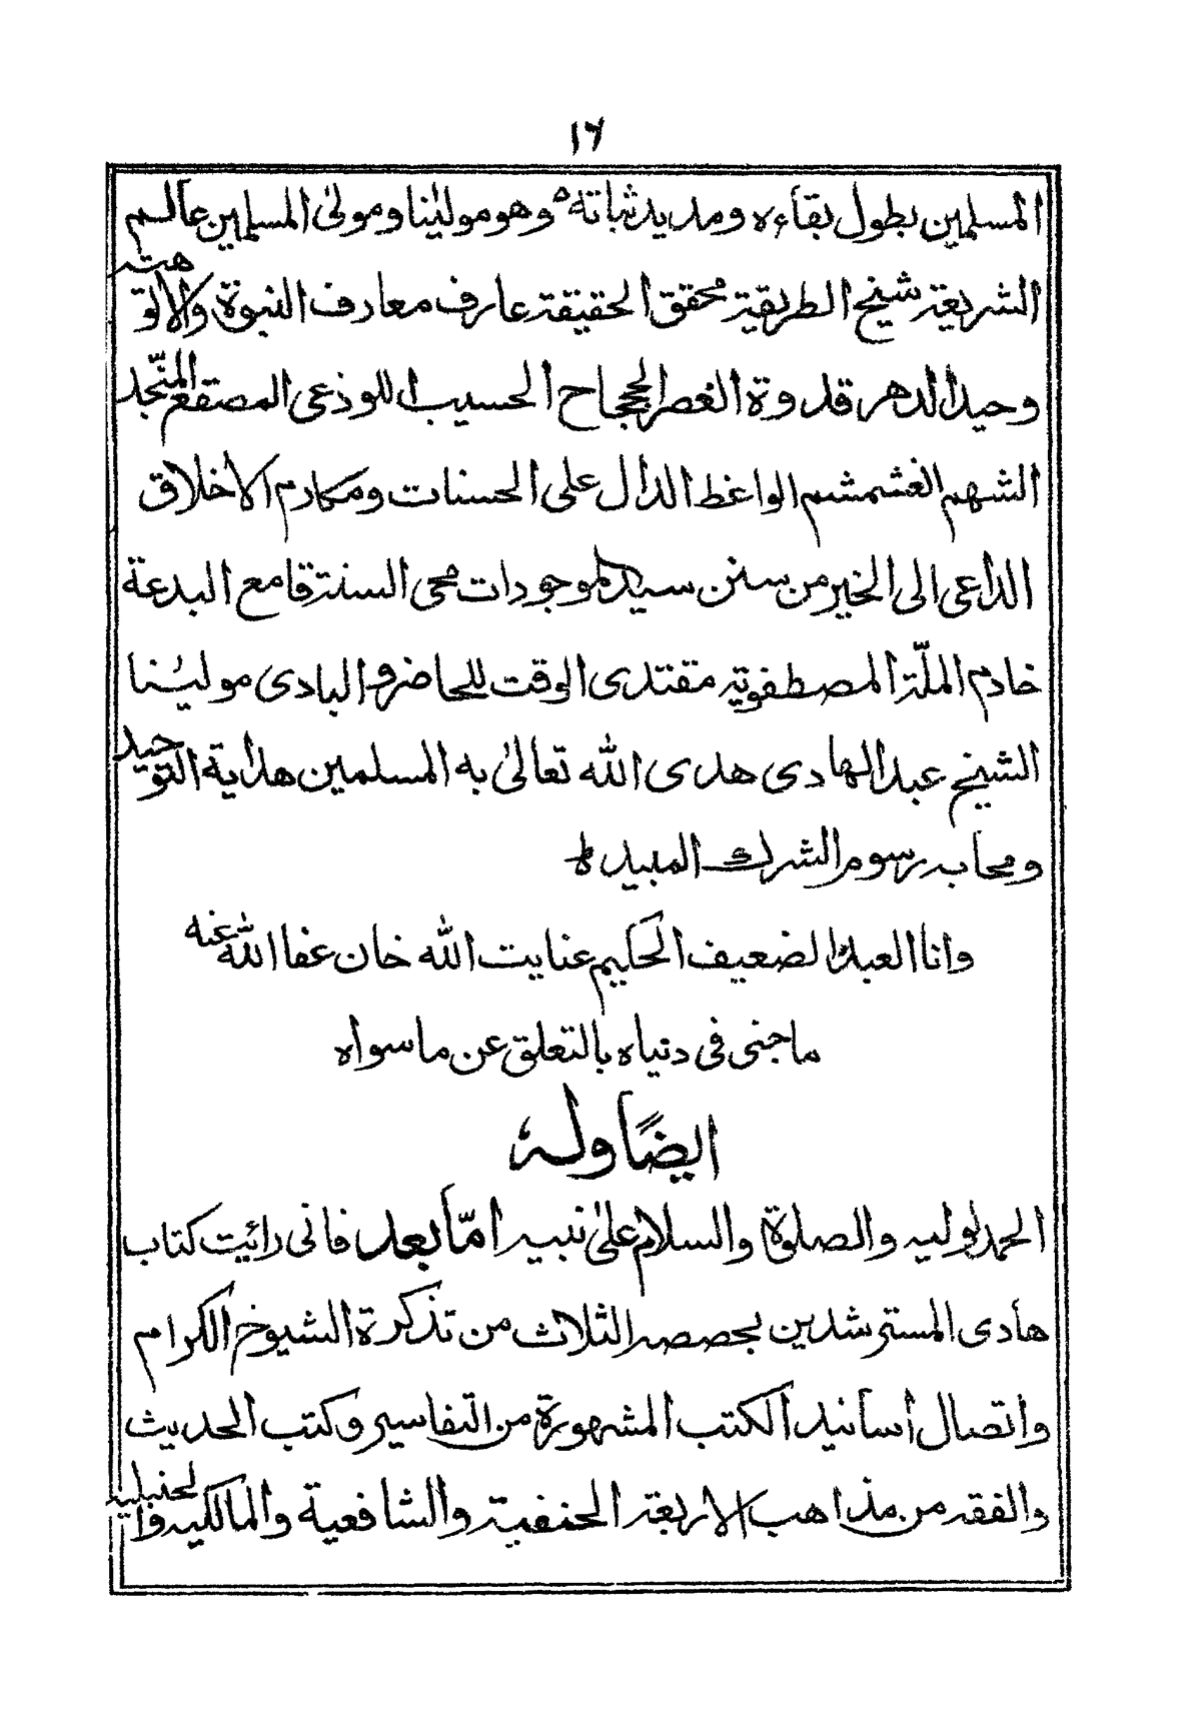 ١٦
المسلمين بطول بقاءه ومديد ثباته وهو مولينا ومولى المسلمين عالم
الشريعة شيخ الطريقة محقق الحقيقة عارف معارف النبوة والالوهته
وحيد الدهر قدوة العصر الججاح الحسيب اللوذعى المصقع المنجد
الشهم الغشمشم الواعظ الدال على الحسنات ومكارم الاخلاق
الداعى الى الخير من سنن سيد الموجودات محى السنة قامع البدعة
خادم الملّة المصطفوية مقتدى الوقت للحاضر والبادى مولينا
الشيخ عبد الهادى هدى الله تعالىٰ به المسلمين هداية التوحيد
ومحا به رسوم الشرك المبيد ط
وانا العبد الضعيف الحكيم عنايت الله خان عفا الله عنه
ما جنى فى دنياه بالتعلق عن ما سواه
ايضًا وله
الحمد لوليه والصلوة والسلام على نبيه امّا بعد فانى رائيت كتاب
هادى المسترشدين بحصصه الثلاث من تذكرة الشيوخ الكرام
واتصال أسانيد الكتب المشهورة من التفاسير وكتب الحديث
والفقه من مذاهب الاربعة الحنفية والشافعية والمالكيه والحنبليه